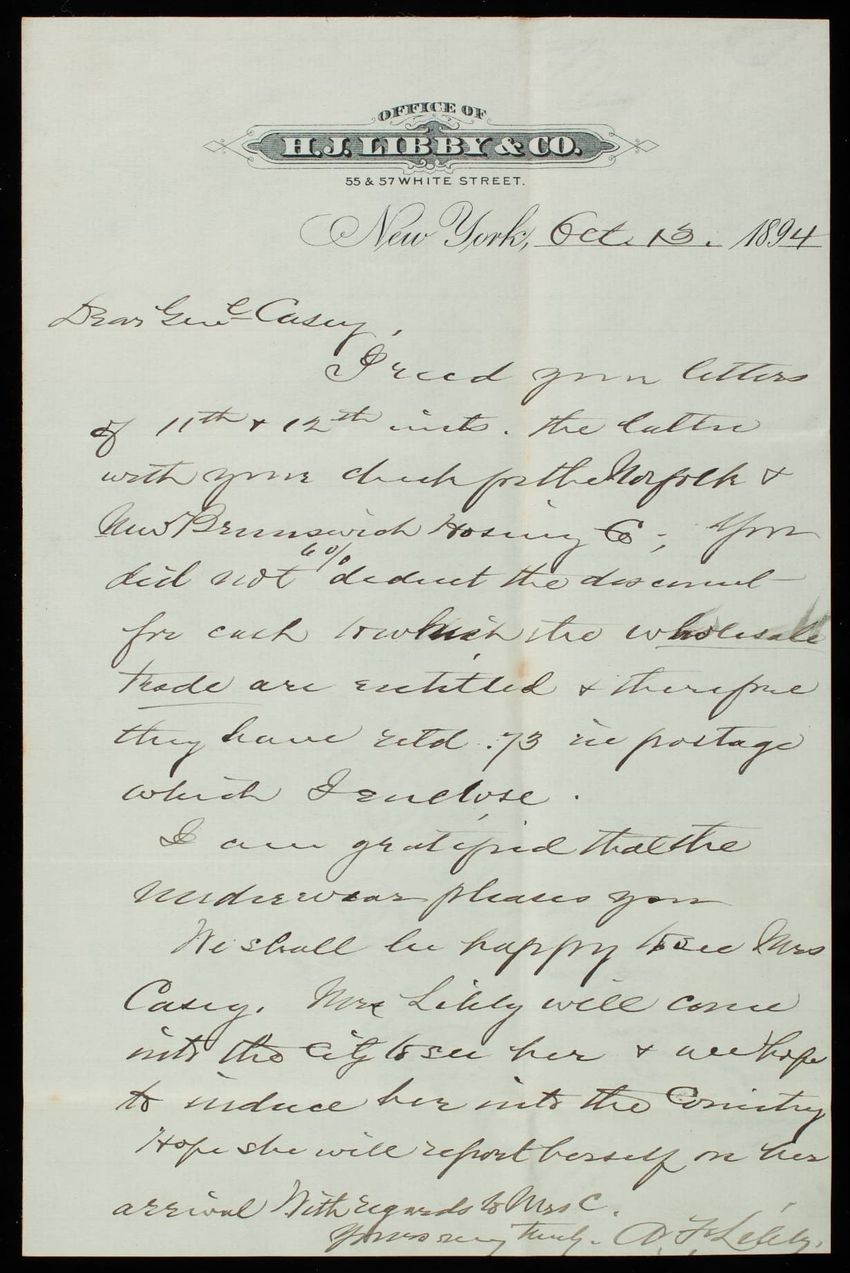 OFFICE OF
H.J. LIBBY & CO.
55 & 57 WHITE STREET.
New York, Oct. 13. 1894
Dear Genl Casey,
I recd your letters
of 11th & 12th insts. the latter
with your check for the Norfolk &
New Brunswick Hosiery Co; You
did not 6% deduct the discount
for cash to which the wholesale
trade are entitled & therefore
they have retd .73 in postage
which I enclose.
I am gratified that the
underwear pleases you
We shall be happy to see Mrs
Casey. Mrs Libby will come
into the city to see her & we hope
to induce her into the Country
Hope she will report herself on her
arrival With regards to Mrs C.
Yours very truly. A. F. Libby.